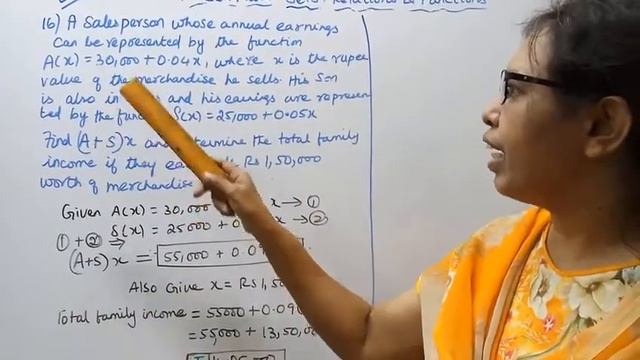 Relations & Functions
16) A Salesperson whose annual earnings
Can be represented by the function
A(x) = 30,000 + 0.04x, where x is the rupee
value of the merchandise he sells. His son
is also in and his earings are represen
ted by the S(x) = 25,000 + 0.05x
Find (A+S)x and determine the total family
income if they Rs 1,50,000
worth of merchandise
Given A(x) = 30,000 x → ①
S(x) = 25000 + 0. x → ②
① + ② ⇒
(A+S)x = 55,000 + 0.0
Also Give x = Rs 1,50,
Total family income = 55000 + 0.09
= 55,000 + 13,50